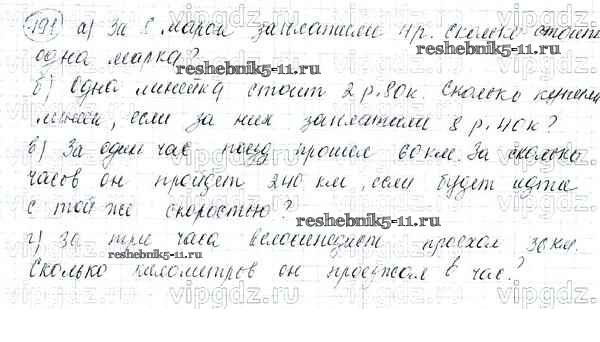 191 а) За 8 марок заплатили 4 р. Сколько стоит
одна марка?
reshebnik5-11.ru
б) Одна линейка стоит 2 р. 80 к. Сколько купили
линеек, если за них заплатили 8 р. 40 к?
в) За один час поезд прошел 60 км. За сколько
часов он пройдет 240 км, если будет идти
с той же скоростью?
reshebnik5-11.ru
г) За три часа велосипедист проехал 36 км.
reshebnik5-11.ru
Сколько километров он проезжал в час?
vipgdz.ru